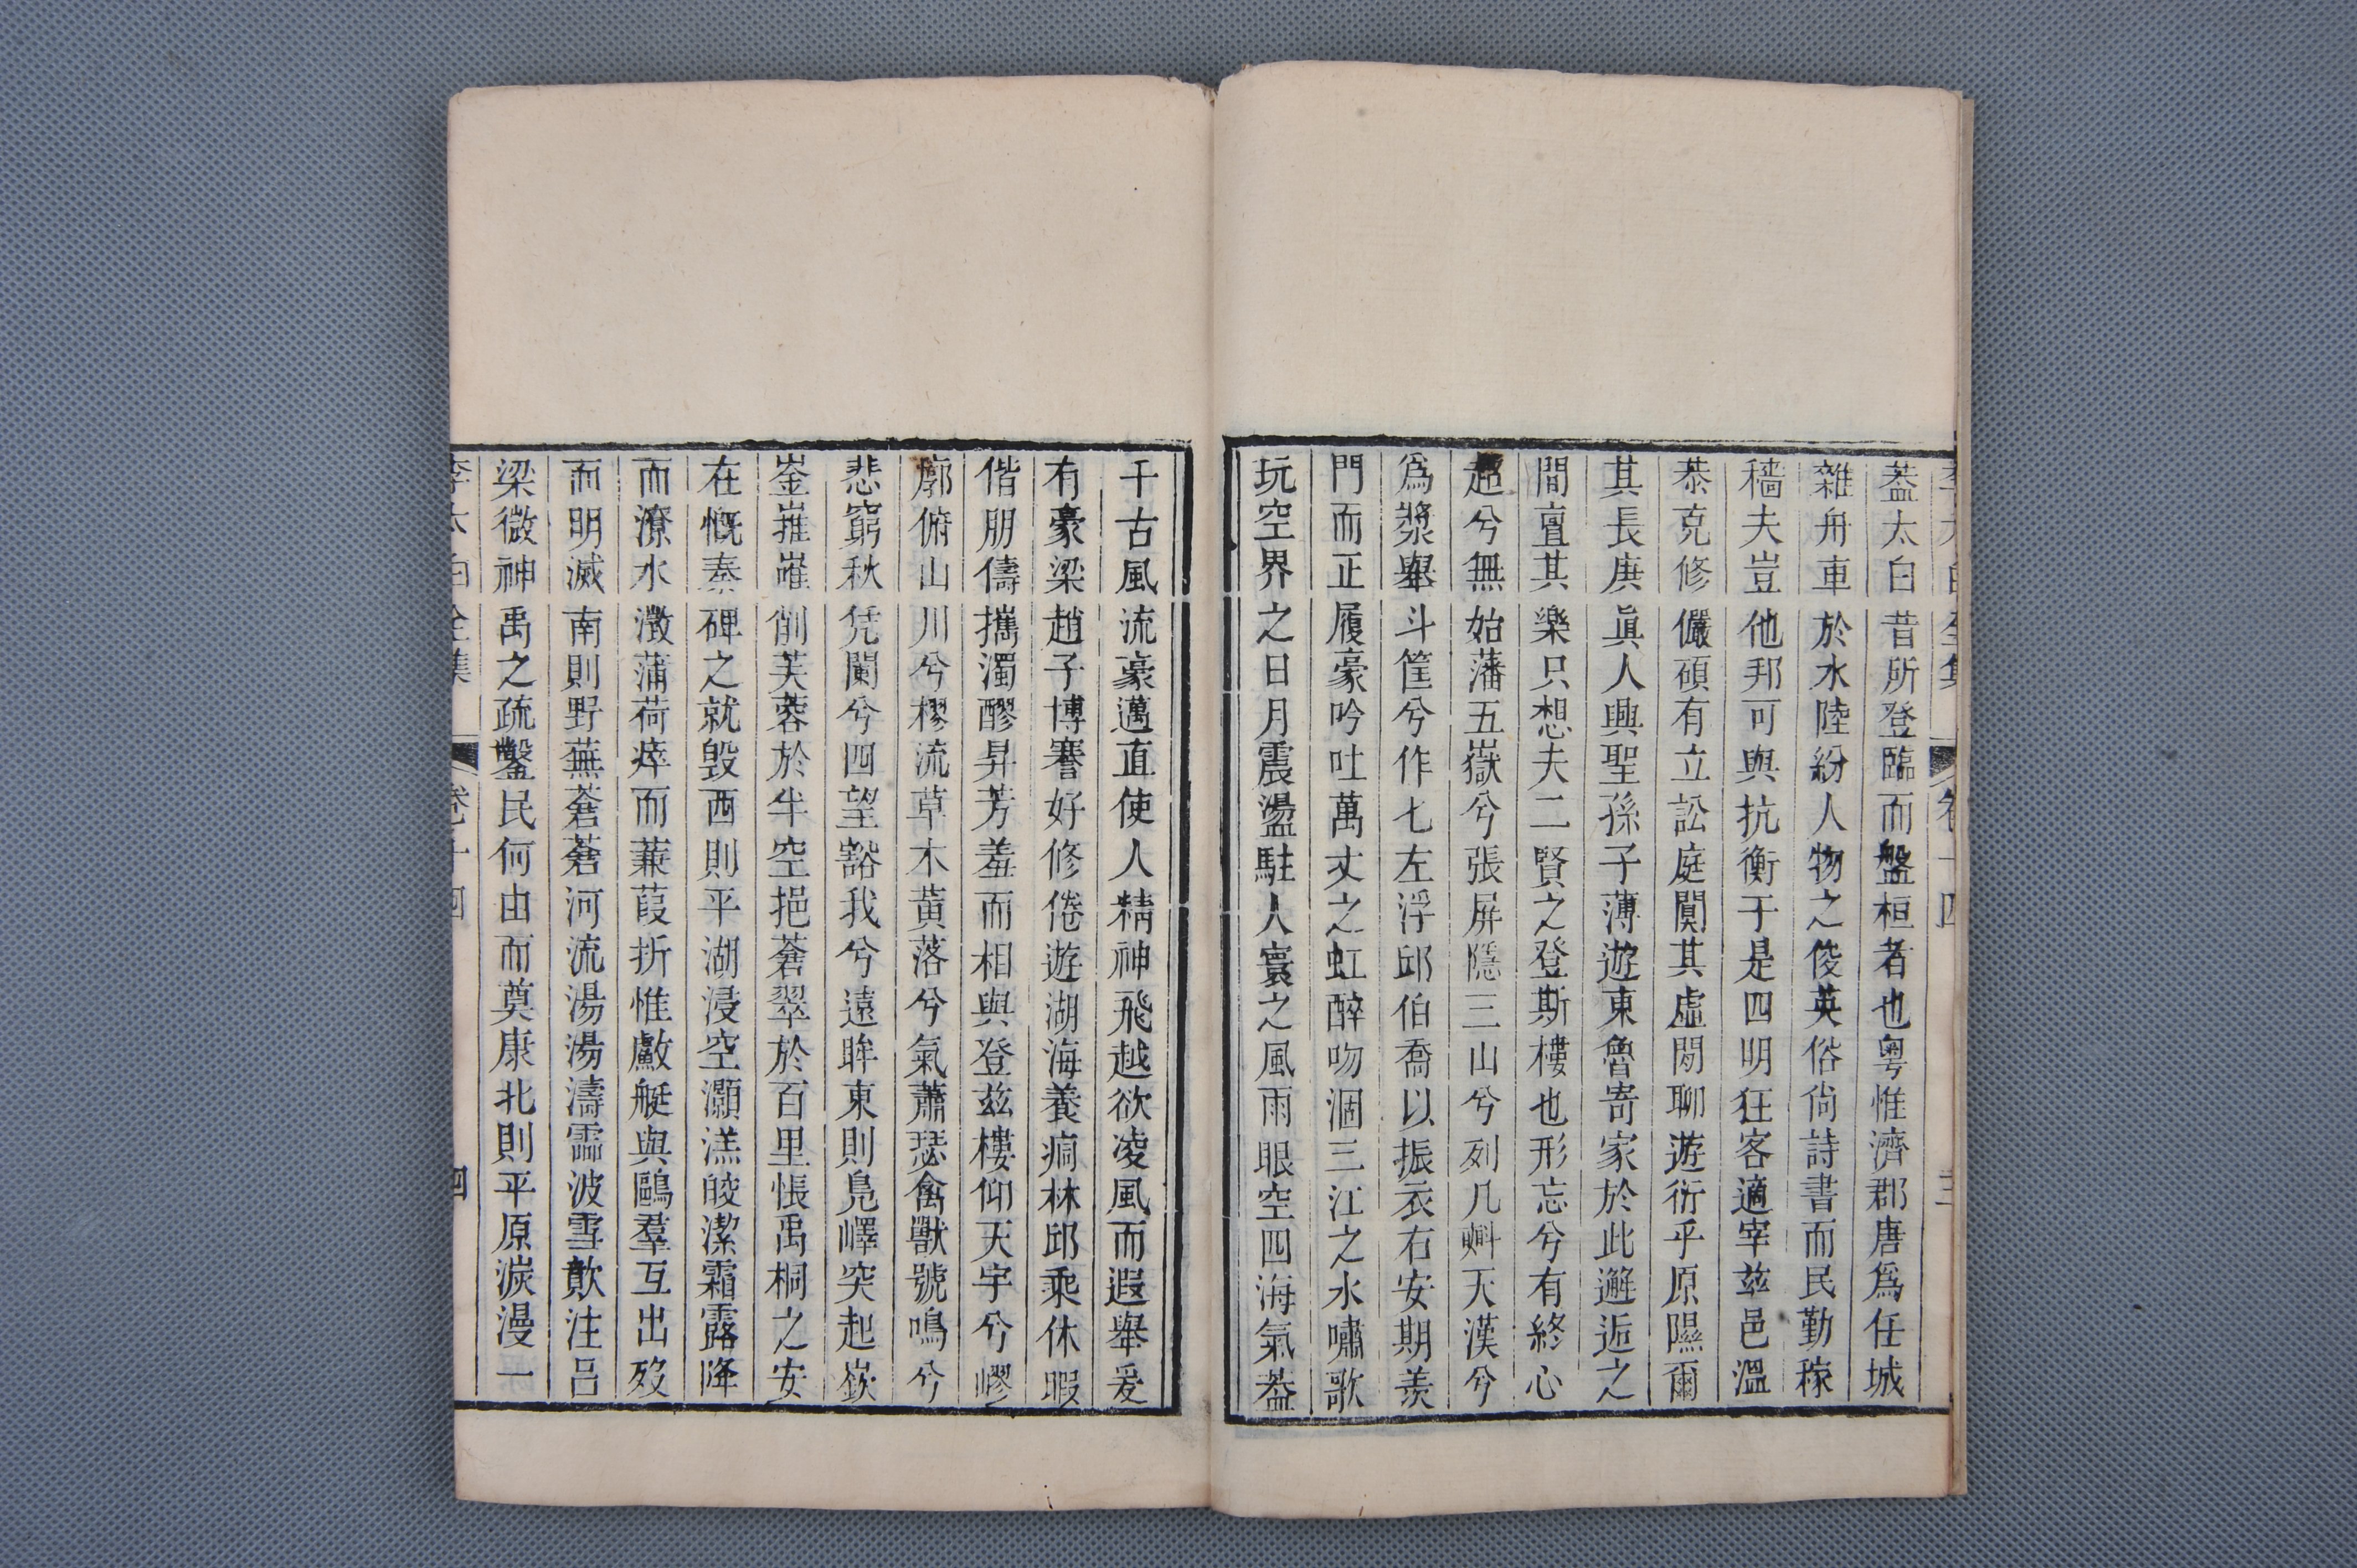 李太白全集 卷十四 三
葢太白昔所登臨而盤桓者也粤惟濟郡唐爲任城
雜舟車於水陸紛人物之俊英俗尚詩書而民勤稼
穡夫豈他邦可與抗衡于是四明狂客適宰兹邑溫
恭克修儼碩有立訟庭闃其虛閒聊遊衍乎原隰爾
其長庚眞人興聖孫子薄遊東魯寄家於此邂逅之
間亶其樂只想夫二賢之登斯樓也形忘兮有終心
超兮無始藩五嶽兮張屏隱三山兮列几㪺天漢兮
爲漿舉斗筐兮作七左浮邱伯喬以振衣右安期羨
門而正履豪吟吐萬丈之虹醉吻涸三江之水嘯歌
玩空界之日月震盪駐人寰之風雨眼空四海氣葢
千古風流豪邁直使人精神飛越欲凌風而遐舉爰
有豪梁趙子博謇好修倦遊湖海養痾林邱乘休暇
偕朋儔攜濁醪昇芳羞而相與登兹樓仰天宇兮嵺
廓俯山川兮樛流草木黄落兮氣蕭瑟禽獸號鳴兮
悲窮秋凭闌兮四望豁我兮遠眸東則鳧嶧突起嶔
崟嶊嶉削芙蓉於半空挹蒼翠於百里悵禹桐之安
在慨秦碑之就毀西則平湖浸空灝溔皎潔霜露降
而潦水澂蒲荷瘁而蒹葭折惟歔艇與鷗羣互出歿
而明滅南則野蕪蒼蒼河流湯湯濤靁波雪歕注呂
梁微神禹之疏鑿民何由而奠康北則平原淡漫一
李太白全集 卷十四 四